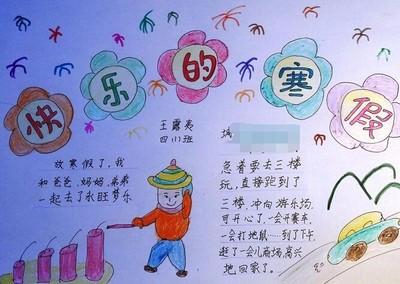 快乐的寒假
王露
四川班
放寒假了，我
和爸爸、妈妈、弟弟
一起去了永旺梦乐
城
急着要去三楼
玩，直接跑到了
三楼，冲向游乐场，
可开心了，一会开赛车，
一会打地鼠……到了下午，
逛了一会儿商场，高兴
地回家了。